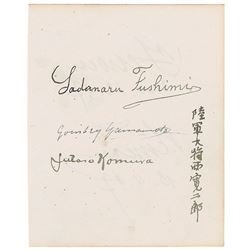 Sadanaru Fushimi
Gombey Yamamoto
Jutaro Komura
陸軍大将西寛二郎